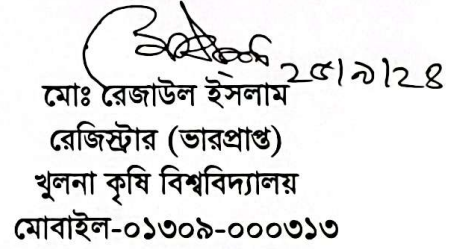 ২৫/৯/২৪
মোঃ রেজাউল ইসলাম
রেজিস্ট্রার (ভারপ্রাপ্ত)
খুলনা কৃষি বিশ্ববিদ্যালয়
মোবাইল-০১৩০৯-০০০৩১৩